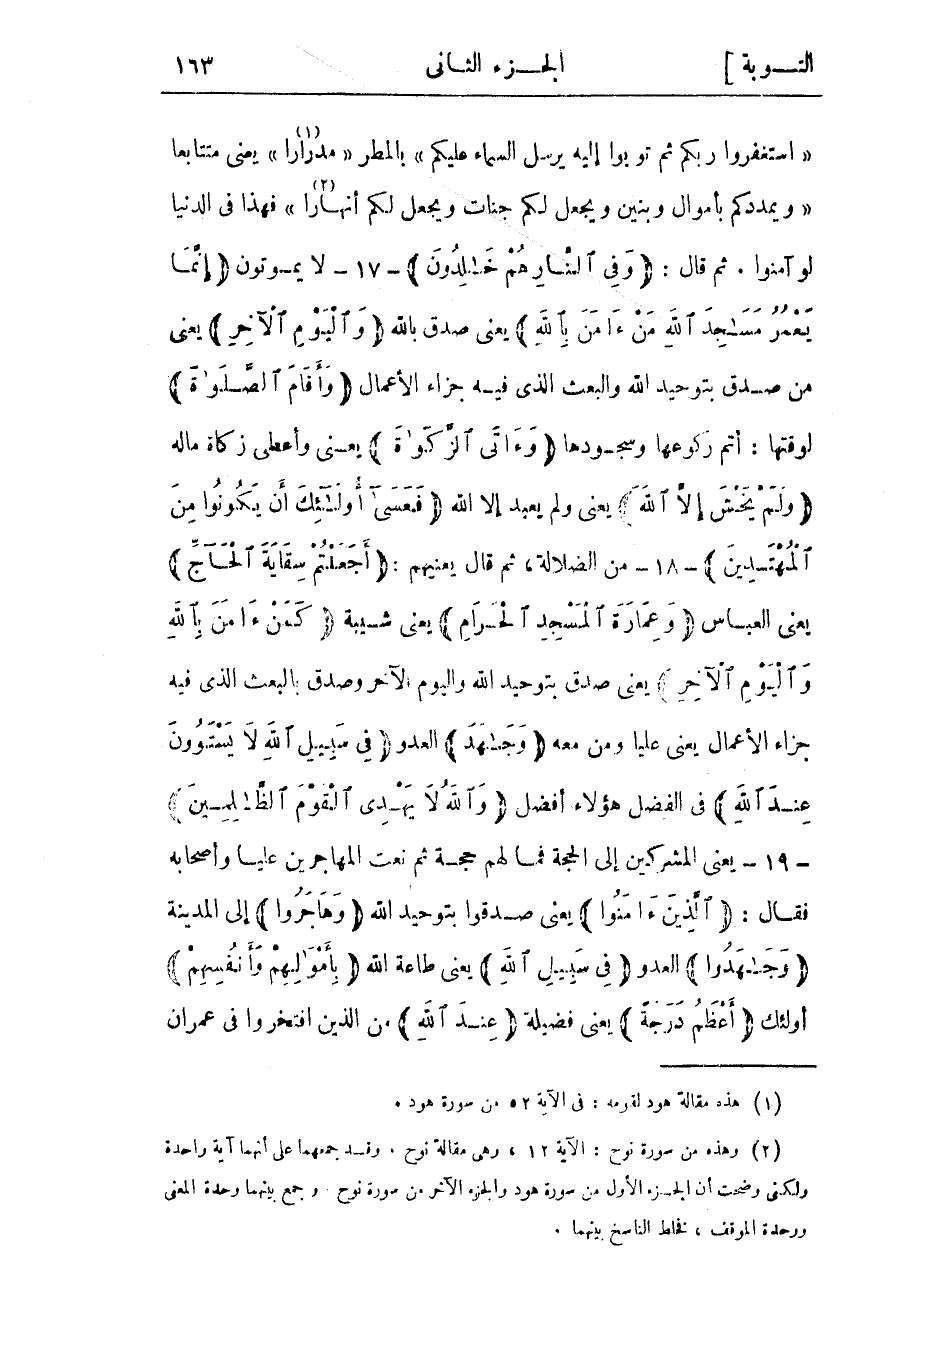 التوبة ] الجزء الثانى ١٦٣
« استغفروا ربكم ثم توبوا إليه يرسل السماء عليكم » بالمطر « مدرارا(١) » يعنى متتابعا
« ويمددكم بأموال وبنين ويجعل لكم جنات ويجعل لكم أنهارا(٢) » فهذا فى الدنيا
لو آمنوا . ثم قال : ﴿ وَفِى ٱلنَّارِ هُمْ خَـٰلِدُونَ ﴾ - ١٧ - لا يموتون ﴿ إِنَّمَا
يَعْمُرُ مَسَـٰجِدَ ٱللَّهِ مَنْ ءَامَنَ بِٱللَّهِ ﴾ يعنى صدق بالله ﴿ وَٱلْيَوْمِ ٱلْآخِرِ ﴾ يعنى
من صدق بتوحيد الله والبعث الذى فيه جزاء الأعمال ﴿ وَأَقَامَ ٱلصَّلَوٰةَ ﴾
لوقتها : أتم ركوعها وسجودها ﴿ وَءَاتَى ٱلزَّكَوٰةَ ﴾ يعنى وأعطى زكاة ماله
﴿ وَلَمْ يَخْشَ إِلَّا ٱللَّهَ ﴾ يعنى ولم يعبد إلا الله ﴿ فَعَسَىٰٓ أُولَـٰٓئِكَ أَن يَكُونُوا مِنَ
ٱلْمُهْتَدِينَ ﴾ - ١٨ - من الضلالة، ثم قال يعنيهم : ﴿ أَجَعَلْتُمْ سِقَايَةَ ٱلْحَآجِّ ﴾
يعنى العباس ﴿ وَعِمَارَةَ ٱلْمَسْجِدِ ٱلْحَرَامِ ﴾ يعنى شيبة ﴿ كَمَنْ ءَامَنَ بِٱللَّهِ
وَٱلْيَوْمِ ٱلْآخِرِ ﴾ يعنى صدق بتوحيد الله واليوم الآخر وصدق بالبعث الذى فيه
جزاء الأعمال يعنى عليا ومن معه ﴿ وَجَـٰهَدَ ﴾ العدو ﴿ فِى سَبِيلِ ٱللَّهِ لَا يَسْتَوُونَ
عِندَ ٱللَّهِ ﴾ فى الفضل هؤلاء أفضل ﴿ وَٱللَّهُ لَا يَهْدِى ٱلْقَوْمَ ٱلظَّـٰلِمِينَ ﴾
- ١٩ - يعنى المشركين إلى الحجة فما لهم حجة ثم نعت المهاجرين عليا وأصحابه
فقال : ﴿ ٱلَّذِينَ ءَامَنُوا ﴾ يعنى صدقوا بتوحيد الله ﴿ وَهَاجَرُوا ﴾ إلى المدينة
﴿ وَجَـٰهَدُوا ﴾ العدو ﴿ فِى سَبِيلِ ٱللَّهِ ﴾ يعنى طاعة الله ﴿ بِأَمْوَٰلِهِمْ وَأَنفُسِهِمْ ﴾
أولئك ﴿ أَعْظَمُ دَرَجَةً ﴾ يعنى فضيلة ﴿ عِندَ ٱللَّهِ ﴾ من الذين افتخروا فى عمران
(١) هذه مقالة هود لقومه : فى الآية ٥٢ من سورة هود .
(٢) وهذه من سورة نوح : الآية ١٢ ، وهى مقالة نوح . وقد جمعهما على أنهما آية واحدة
ولكنى وضحت أن الجزء الأول من سورة هود والجزء الآخر من سورة نوح . وجمع بينهما وحدة المعنى
ووحدة الموقف ، فخلط الناسخ بينهما .